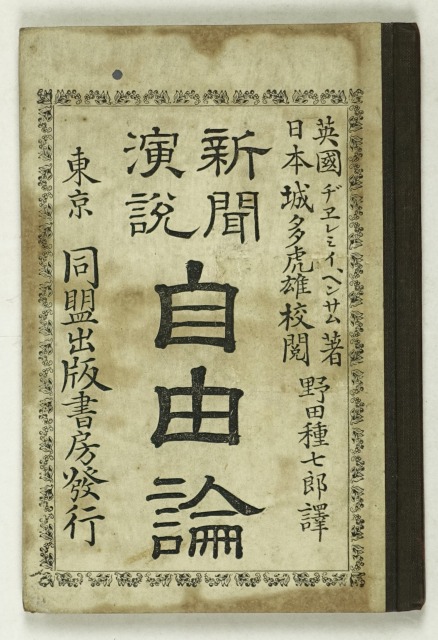 英國 ヂヱレミイ、ベンサム 著
日本 城多虎雄 校閲
野田種七郎 譯
新聞
演説
自由論
東京 同盟出版書房發行